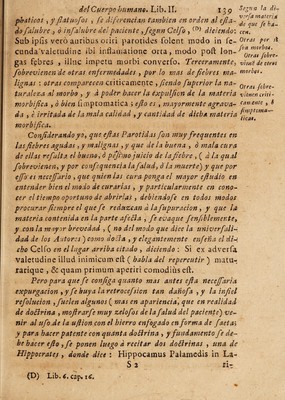 del Cuerpo humano. Lib. II. 139
phaticos, y flatuosos, se diferencian tambien en orden al esta-
do salubre, ò insalubre del paciente, segun Celso, (D) diciendo:
Sub ipsis verò auribus oriri parotides solent modo in se-
cunda valetudine ibi inflamatione orta, modo post lon-
gas febres, illuc impetu morbi converso. Terceramente,
sobrevienen de otras enfermedades, por lo mas de fiebres ma-
lignas: otras comparecen criticamente, siendo superior la na-
turaleza al morbo, y à poder hacer la expulsion de la materia
morbifica, ò bien simptomatica; esto es, mayormente agrava-
da, è irritada de la mala calidad, y cantidad de dicha materia
morbifica.
Considerando yo, que estas Parotidas son muy frequentes en
las fiebres agudas, y malignas, y que de la buena, ò mala cura
de ellas resulta el bueno, ò pessimo juicio de la fiebre, (à la qual
sobrevienen, y por consequencia la salud, ò la muerte) y que por
esso es necessario, que quien las cura ponga el mayor estudio en
entender bien el modo de curarlas, y particularmente en cono-
cer el tiempo oportuno de abrirlas, debiendose en todos modos
procurar siempre el que se reduzcan à la supuracion, y que la
materia contenida en la parte afecta, se evaque sensiblemente,
y con la mayor brevedad, (no del modo que dice la universali-
dad de los Autores) como docta, y elegantemente enseña el di-
cho Celso en el lugar arriba citado, diciendo: Si ex adversa
valetudine illud inimicum est (habla del repercutir) matu-
rarique, & quam primum aperiri comodius est.
Pero para que se consiga quanto mas antes esta necessaria
expurgacion, y se huya la retrocession tan dañosa, y la infiel
resolucion, suelen algunos (mas en apariencia, que en realidad
de doctrina, mostrarse muy zelosos de la salud del paciente) ve-
nir al uso de la ustion con el hierro enfogado en forma de saeta;
y para hacer patente con quanta doctrina, y fundamento se de-
be hacer esto, se ponen luego à recitar dos doctrinas, una de
Hippocrates, donde dice: Hippocamus Palamedis in La-
S 2 ri-
(D) Lib. 6. cap. 16.
Segun la di-
versa materia
de que se ha-
cen.
Otras por
morbo.
Otras sobre-
vienen de otros
morbos.
Otras sobre-
vienen criti-
camente, ò
simptoma-
ticas.